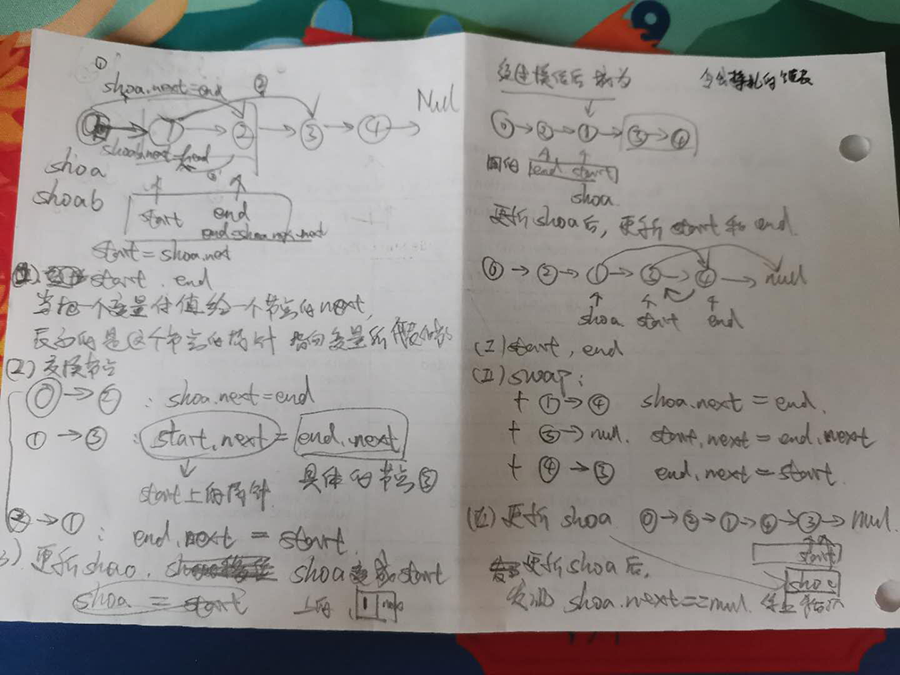 ①
shoa.next=end
②
Nul
⓪ → ① → ② → ③ → ④ →
shoa
shoab
start end
start = shoa.next
start, end
当把一个变量付值给一个节点的next,
表示的是这个节点的指针 指向变量所代表的
(2) 交换节点
⓪ → ② : shoa.next=end
① → ③ : start.next = end.next
start上的指针 具体的节点③
② → ① : end.next = start.
3) 更新shao, shoa变成start
shoa = start 上的
经过換位后 就为
⓪ → ② → ① → ③ → ④
end start
shoa
更新shoa后, 更新start和end.
⓪ → ② → ① → ③ → ④ → null
shoa start end
(I) start, end
(II) swap:
+ ① → ④ shoa.next = end.
+ ③ → null. start.next = end.next
+ ④ → ③ end.next = start.
更新 shoa ⓪ → ② → ① → ④ → ③ → null.
start
更新shoa后, shoa
发现 shoa.next==null.